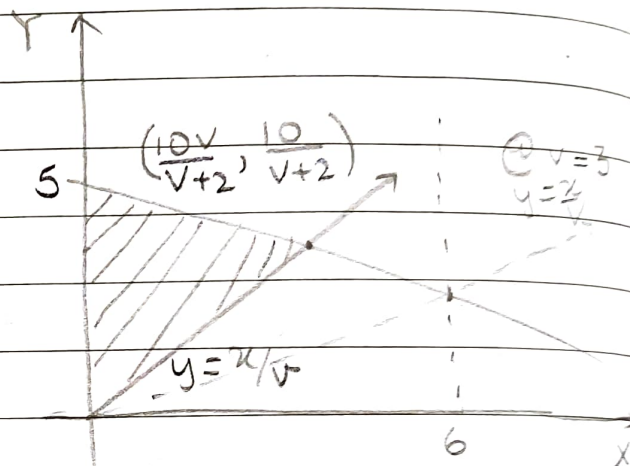 Y
(10v/v+2, 10/v+2)
@ v=3
5
y=x/v
y=x/v
6
X